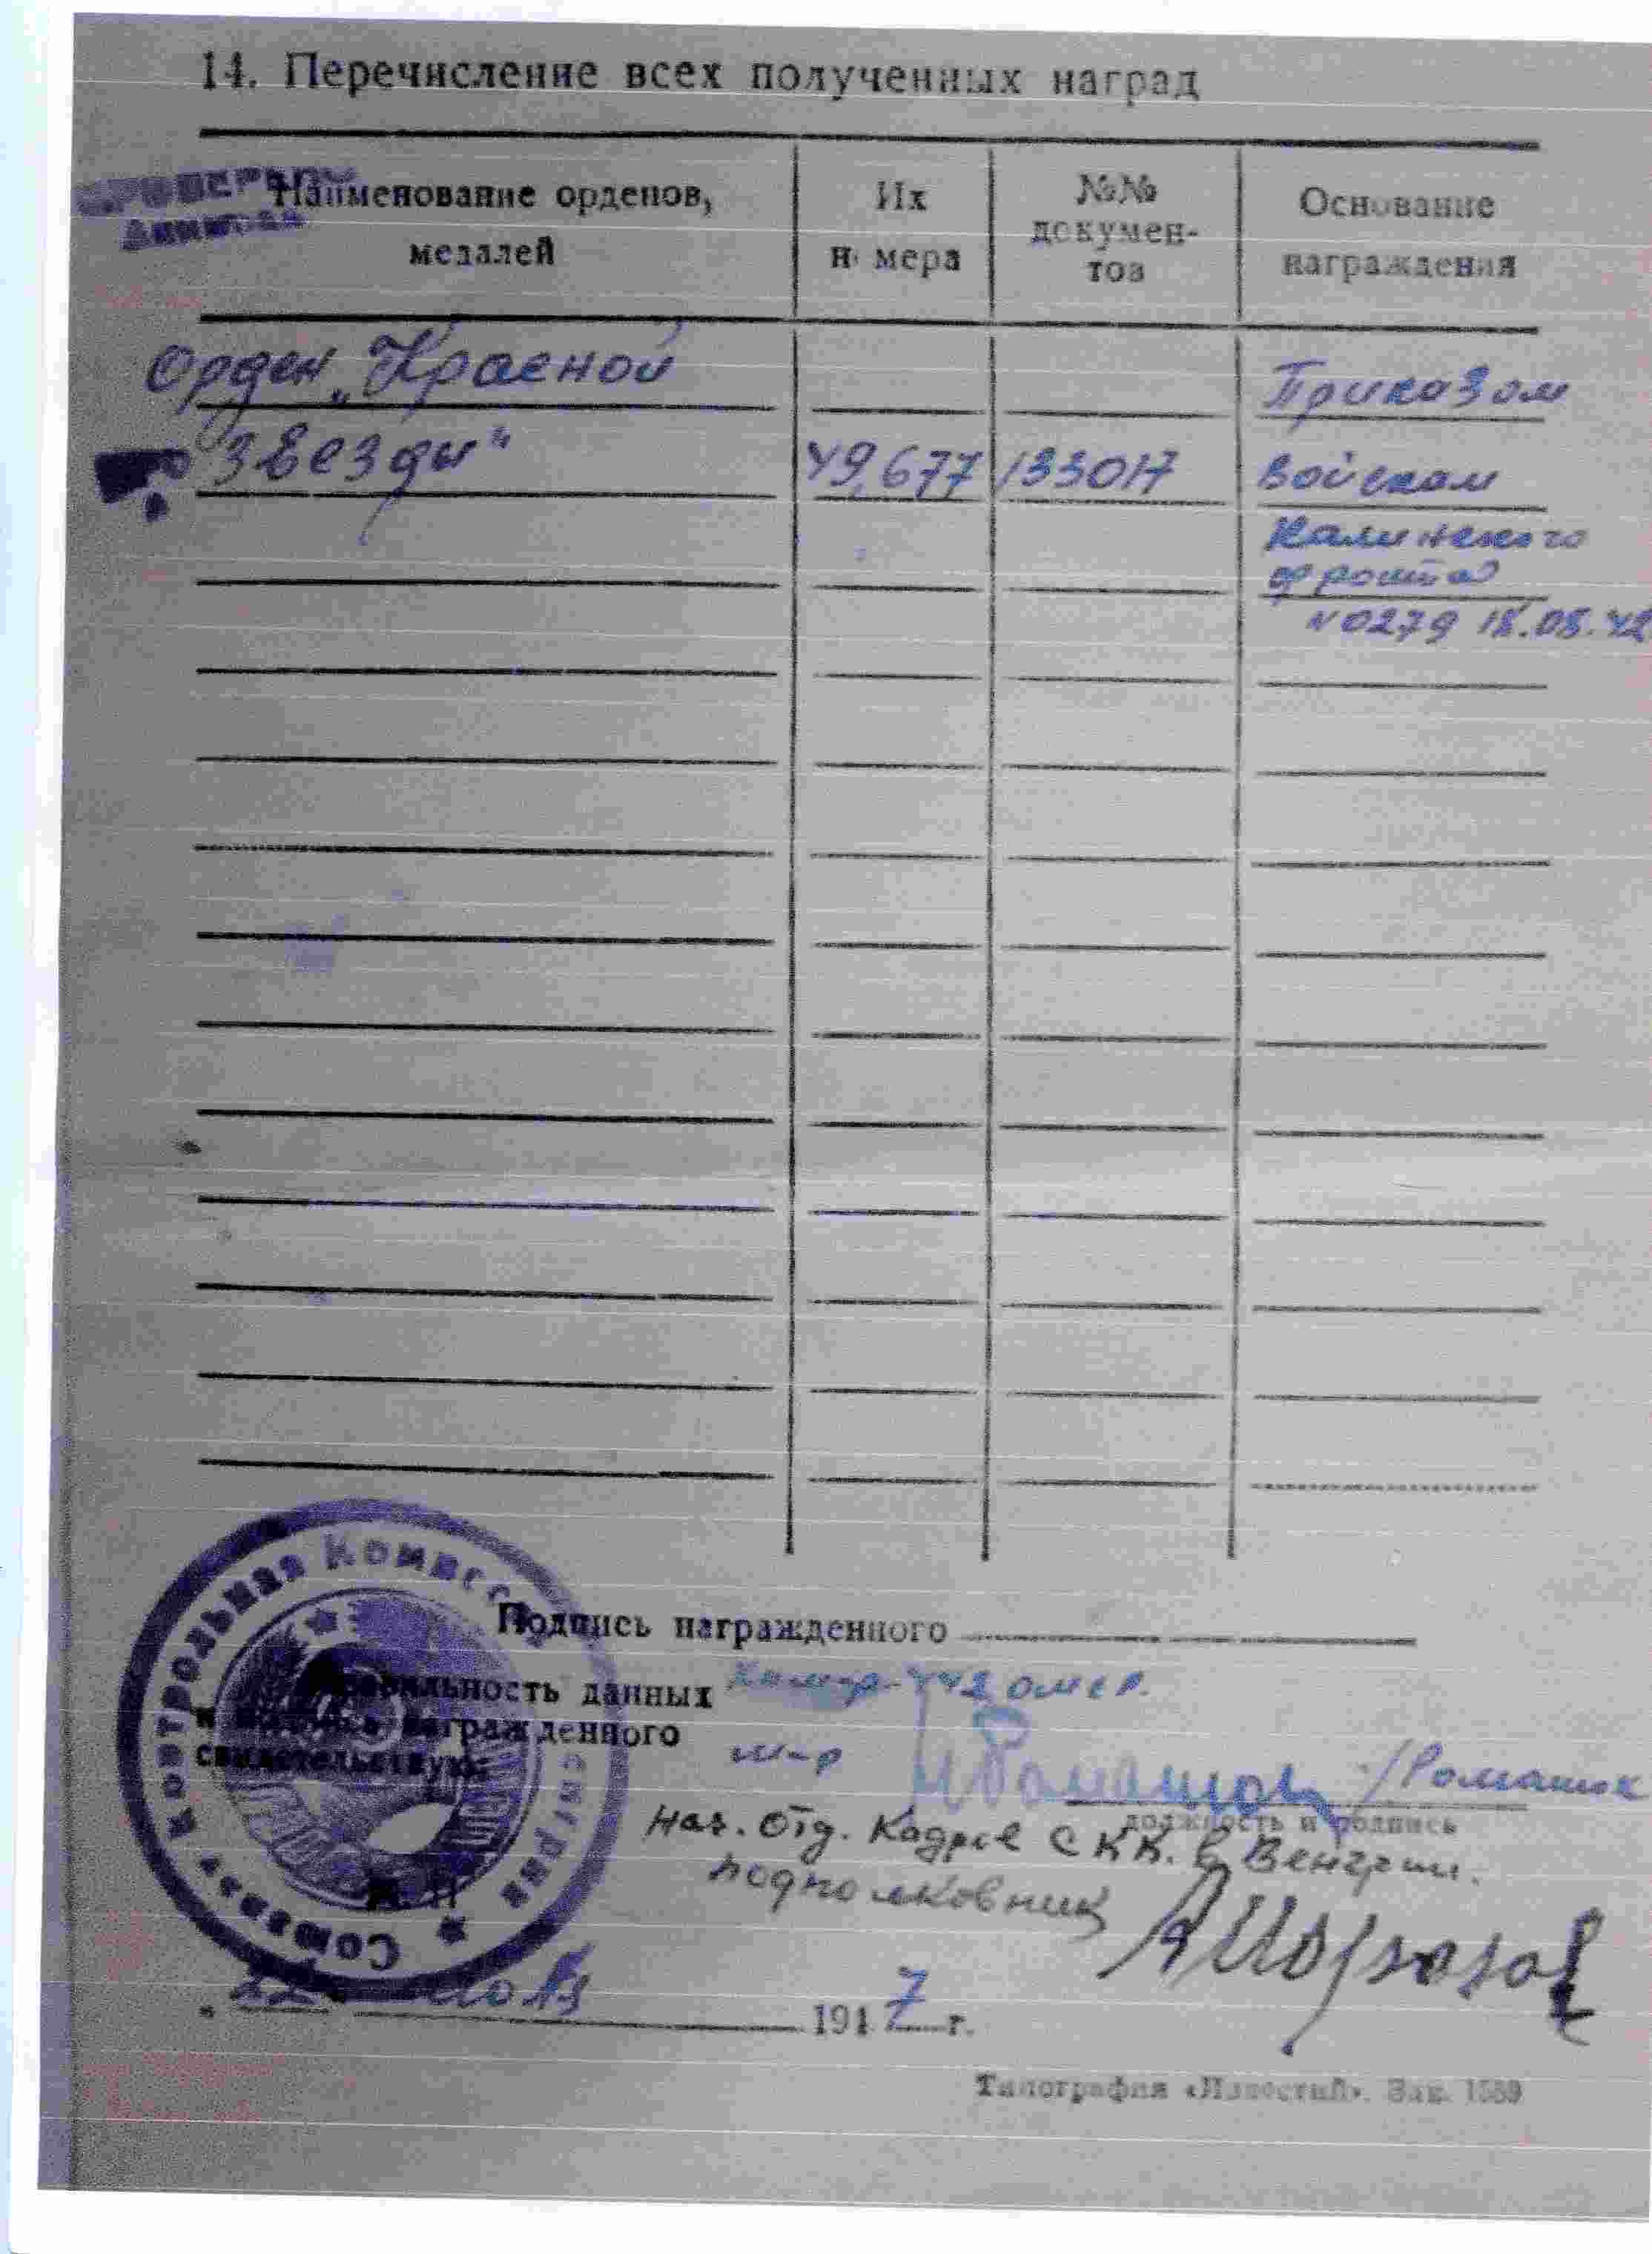 14. Перечисление всех полученных наград
Наименование орденов,
медалей
Их
номера
№№
докумен-
тов
Основание
награждения
Орден „Красной
Звезды"
49,677
133017
Приказом
Войскам
Калинского
фронта
№0279 18.08.42
Союзная Контрольная Комиссия
Венгрия
Подпись награжденного
Правильность данных
и подпись награжденного
свидетельствую:
м-р
/Романюк
должность и подпись
Нач. Отд. Кадров СКК. в Венгрии.
подполковник
АМорозов
М. П
22
1947 г.
Типография «Известий». Зак. 1589